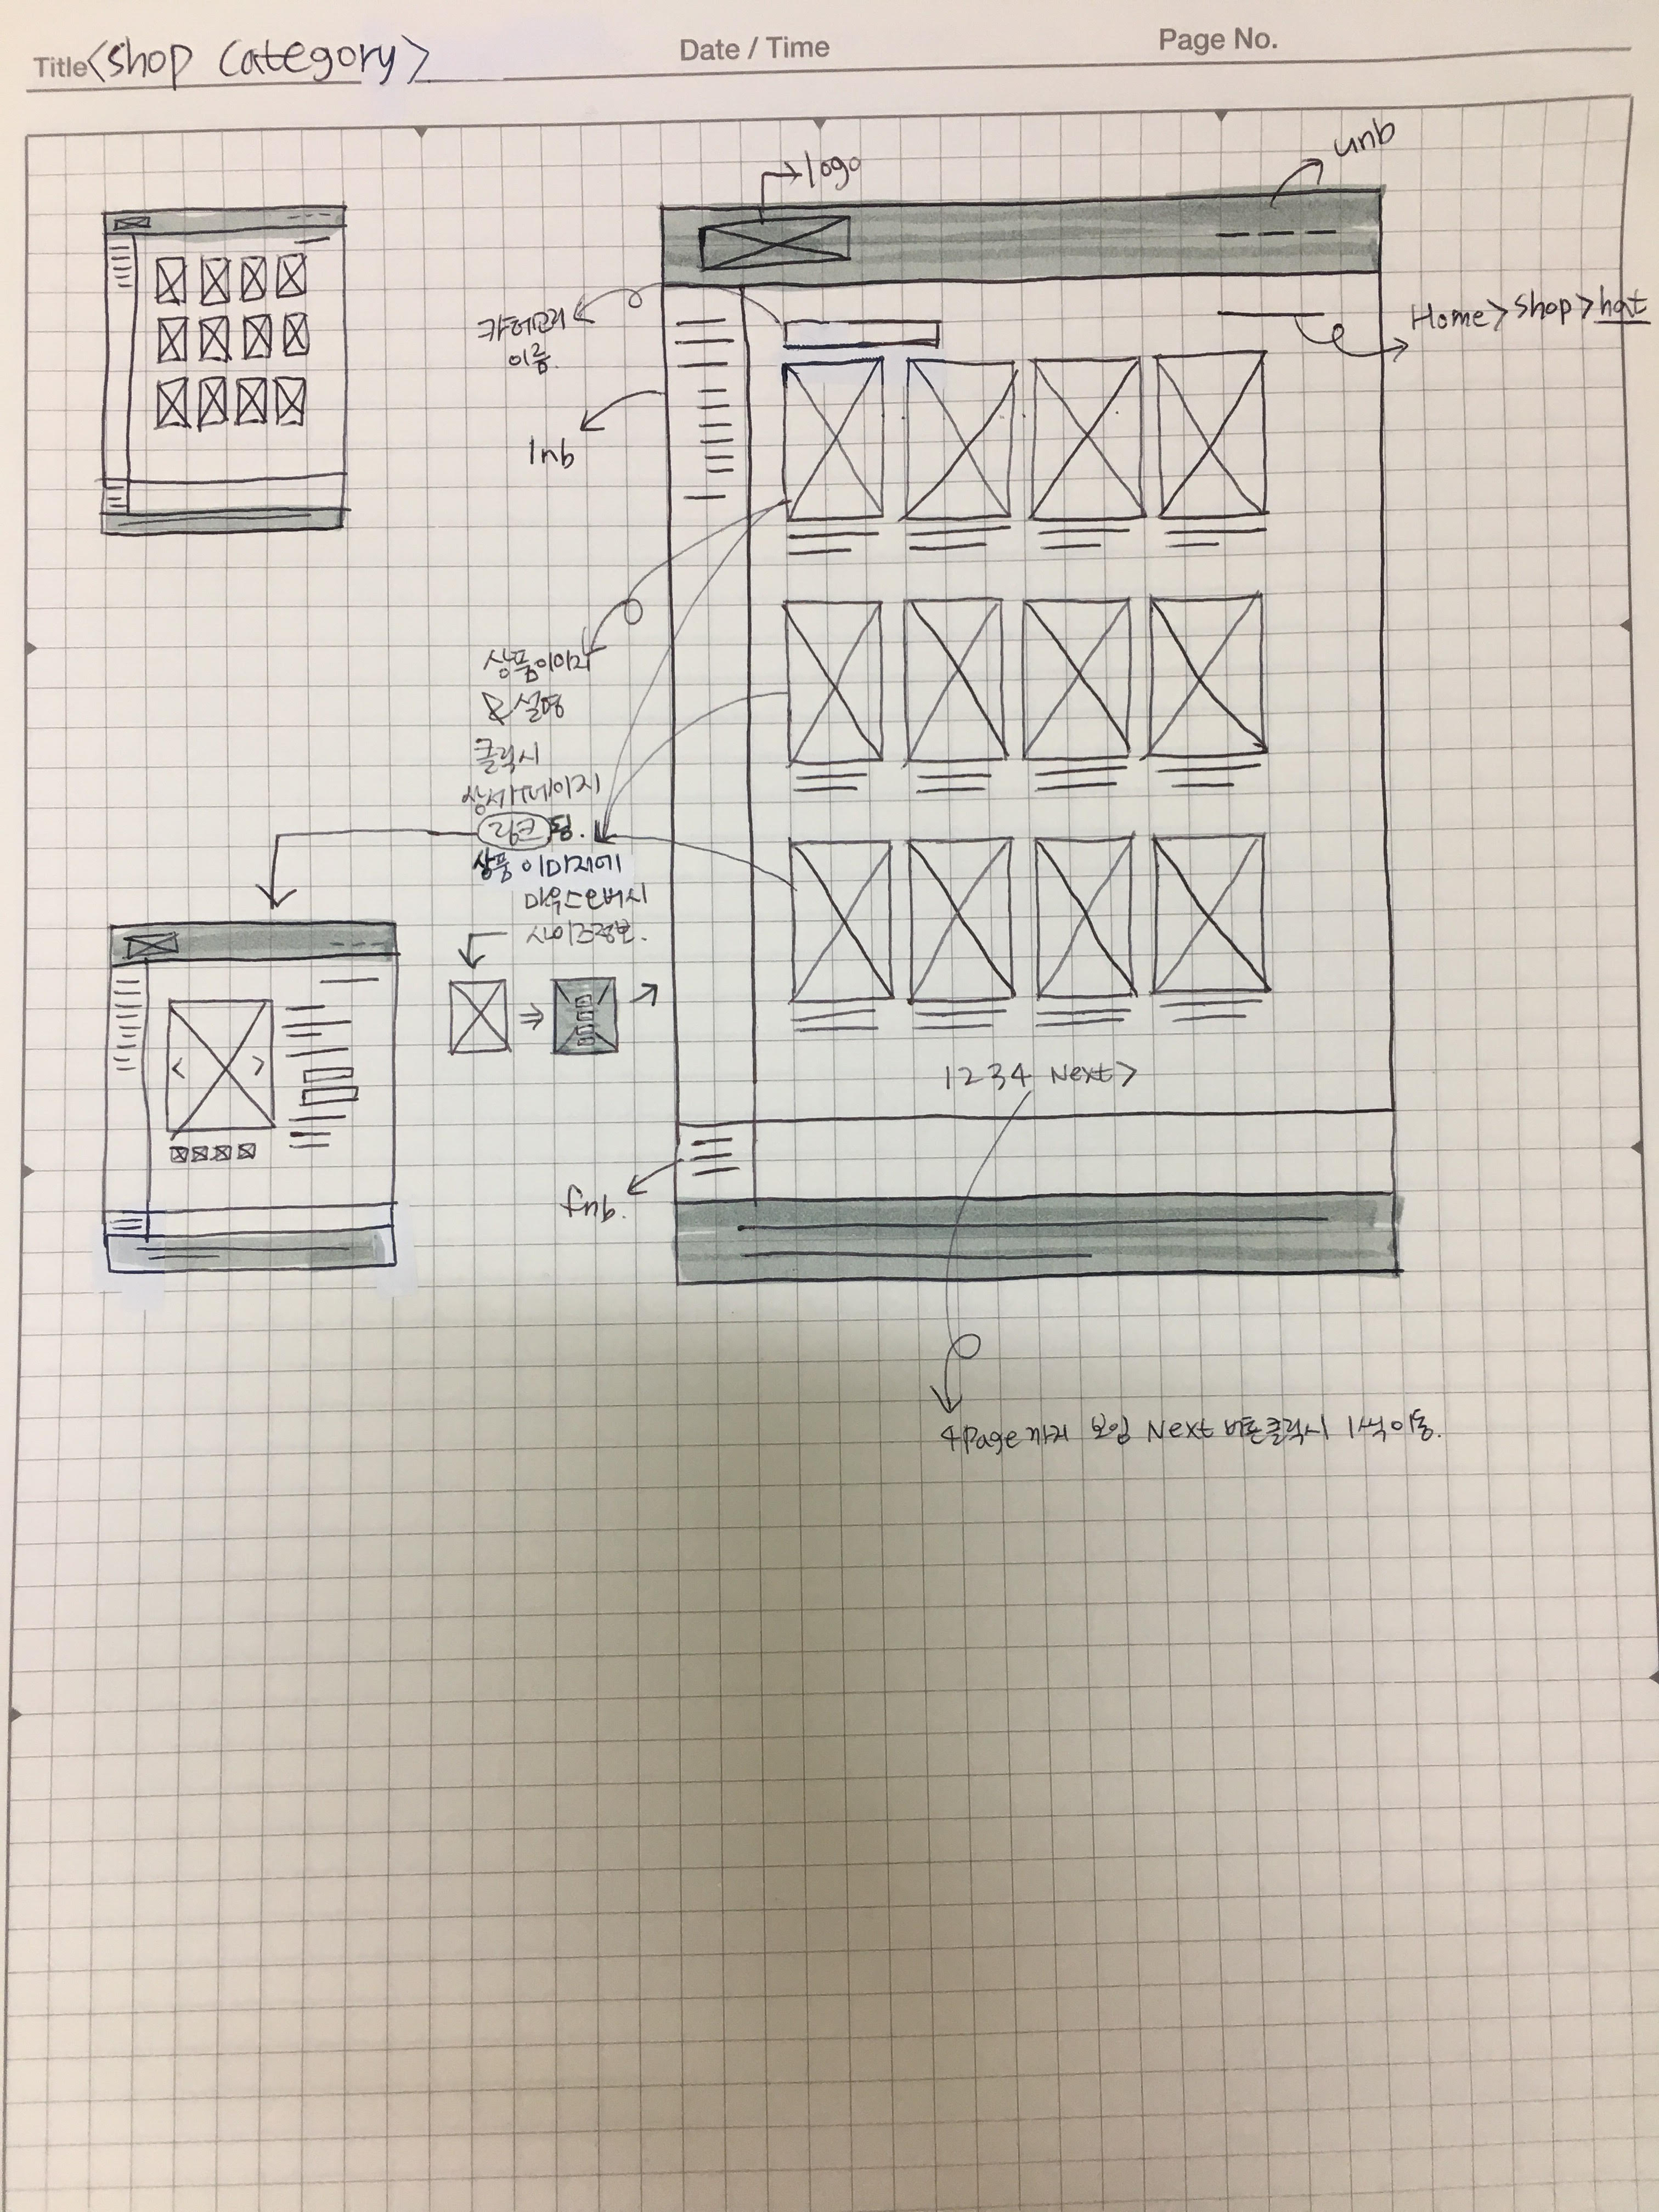 Title <shop category>
Date / Time
Page No.
logo
unb
Home>shop>hat
카테고리
이름.
lnb
상품이미지
및 설명
클릭시
상세페이지
링크됨.
상품 이미지에
마우스오버시
사이즈정보.
< >
1 2 3 4 Next>
fnb.
4page까지 보임 Next 버튼클릭시 1씩 이동.